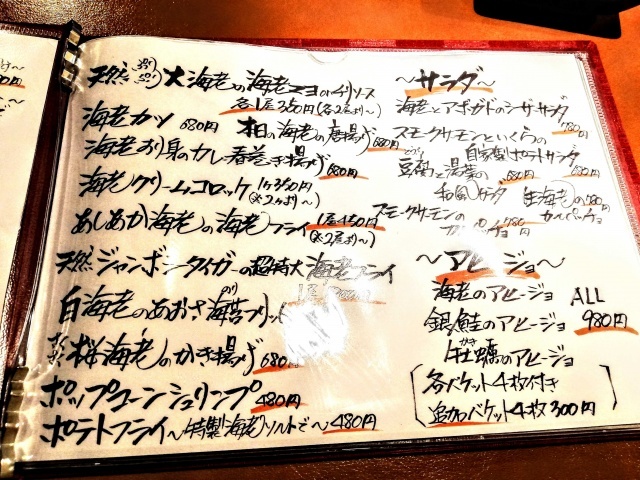 天然ぷりぷり大海老の海老マヨorチリソース
各1尾350円(各2尾より〜)
海老カツ 680円 本日の海老の唐揚げ 680円
海老すり身のカレー春巻き揚げ 680円
海老クリームコロッケ 1ヶ350円
(※2ヶより〜)
あしあか海老の海老フライ 1尾450円
(※2尾より〜)
天然ジャンボシータイガーの超特大海老フライ
白海老のあおさ海苔フリット
桜海老のかき揚げ 680
ポップコーンシュリンプ 480円
ポテトフライ〜特製海老ソルトで〜480円
〜サラダ〜
海老とアボガドのシーザーサラダ
780円
スモークサーモンといくらの
自家製ポテトサラダ
680円
豆腐と湯葉の
和風サラダ 680円
生海老の
カルパッチョ 980円
スモークサーモンの
カルパッチョ 980円
〜アヒージョ〜
海老のアヒージョ ALL
銀鮭のアヒージョ 980円
牡蠣のアヒージョ
かき
各バケット4枚付き
追加バケット4枚300円